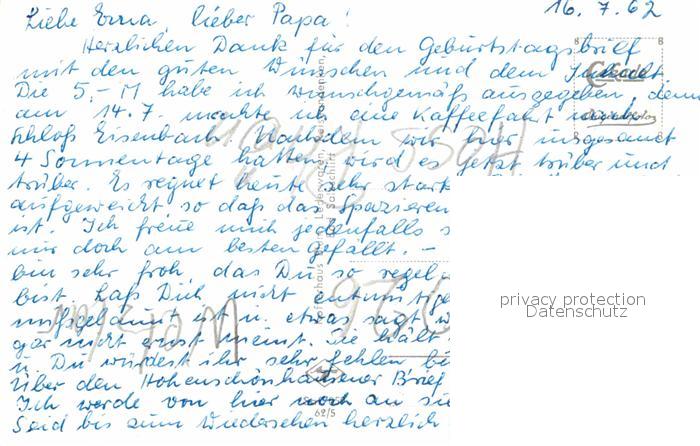 16. 7. 62
Liebe Erna, lieber Papa!
Herzlichen Dank für den Geburtstagsbrief
mit den guten Wünschen und dem Inhalt.
Die 5,- M habe ich wunschgemäß ausgegeben, denn
am 14.7. machte ich eine Kaffeefahrt nach
Schloß Eisenbach. Nachdem wir hier insgesamt
4 Sonnentage hatten wird es jetzt trüber und
trüber. Es regnet heute sehr stark
aufgeweicht so daß das Spazieren
ist. Ich freue mich jedenfalls s
mir doch am besten gefällt. –
bin sehr froh das Du so regel
bist. Laß Dich nicht entmutige
ist u. etwas sagt w
gar nicht ernst meint. Sie hält
u. Du würdest ihr sehr fehlen
Über den Hohenschönhausener Brief
Ich werde von hier noch an sie
Seid bis zum Wiedersehen herzlich
privacy protection
Datenschutz
62/5